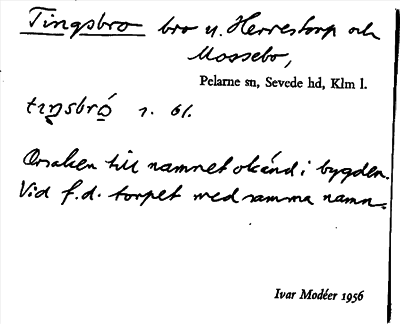 Tingsbro bro u. Herrestorp och
Mossebo,
Pelarne sn, Sevede hd, Klm l.
1. 61.
Orsaken till namnet okänd i bygden.
Vid f.d. torpet med samma namn.
Ivar Modéer 1956